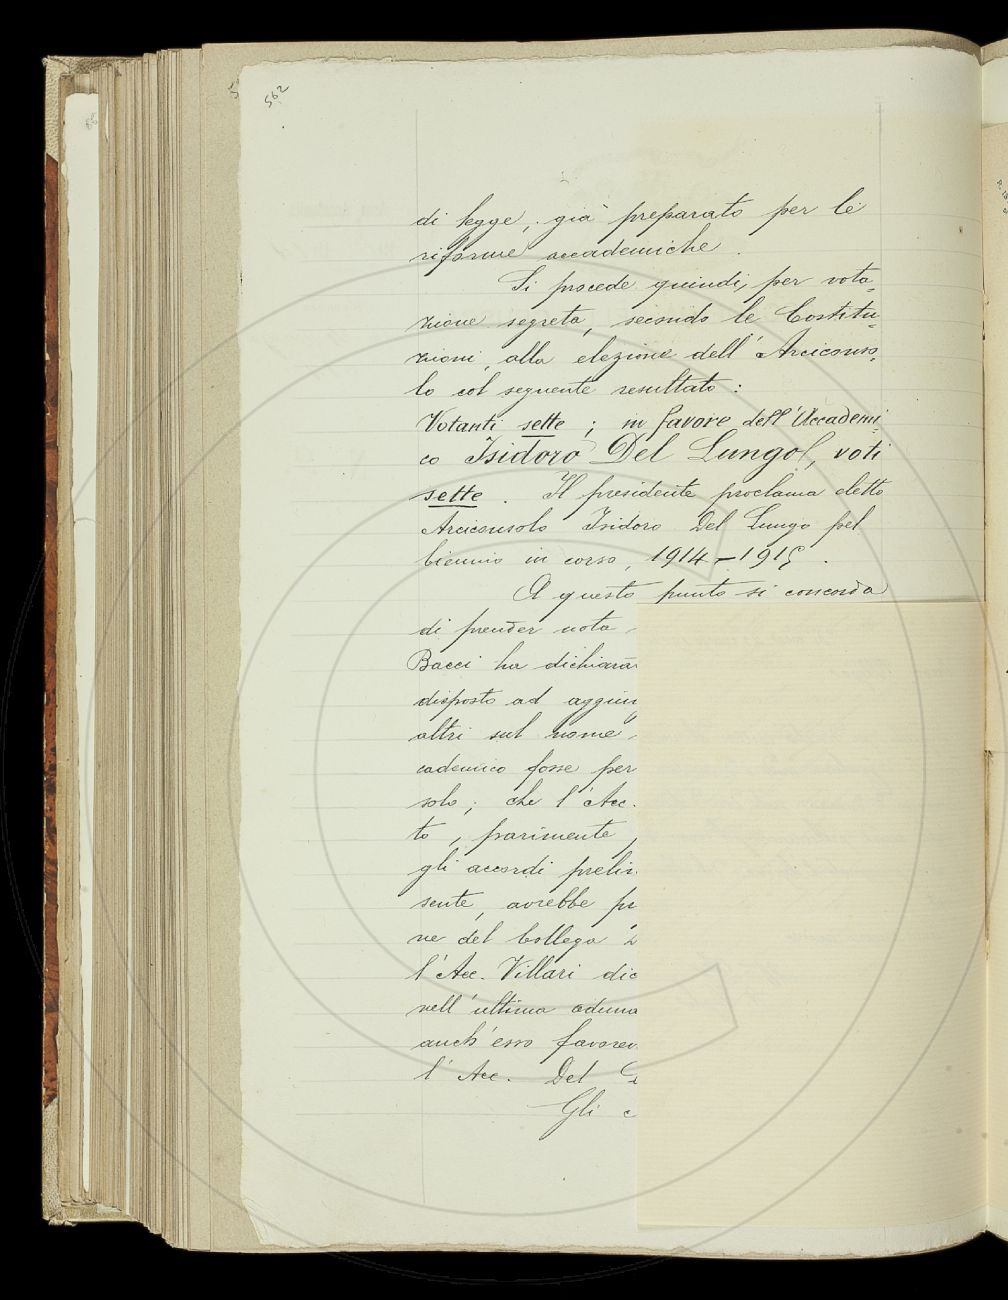 562
di legge, già preparato per le
riforme accademiche.
Si procede quindi, per vota-
zione segreta, secondo le Costitu-
zioni, alla elezione dell'Arciconso-
lo col seguente resultato:
Votanti sette; in favore dell'Accademi-
co Isidoro Del Lungo, voti
sette. Il presidente proclama eletto
Arciconsolo Isidoro Del Lungo pel
biennio in corso, 1914-1915.
A questo punto si concorda
di prender nota
Bacci ha dichiara
disposto ad aggiun
altri sul nome
cademico fosse per
solo; che l'Acc.
to, parimente,
gli accordi preli
sente, avrebbe pr
ne del Collega
l'Acc. Villari dic
nell'ultima aduna
anch'esso favorev
l'Acc. Del
Gli